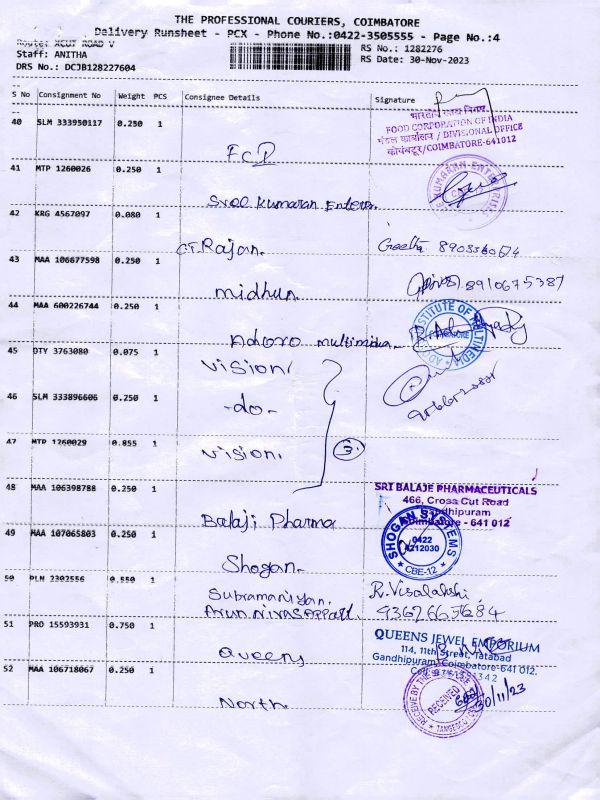 THE PROFESSIONAL COURIERS, COIMBATORE
Delivery Runsheet - PCX - Phone No.:0422-3505555 - Page No.:4
Route: XCUT ROAD V
RS No.: 1282276
Staff: ANITHA
RS Date: 30-Nov-2023
DRS No.: DCJB128227604
S No Consignment No Weight PCS Consignee Details Signature
भारतीय खाद्य निगम
40 SLM 333950117 0.250 1
FOOD CORPORATION OF INDIA
मंडल कार्यालय / DIVISIONAL OFFICE
कोयंबटूर/COIMBATORE-641012
FCI
41 MTP 1260026 0.250 1
Sree Kumaran Enterp.
42 KRG 4567097 0.080 1
C.T. Rajan. Geetha
43 MAA 106677598 0.250 1
8910675387
midhun.
44 MAA 600226744 0.250 1
INSTITUTE OF MULTIMEDIA
Adoro multimidia.
45 DTY 3763080 0.075 1
Vision
46 SLM 333896606 0.250 1
-do-
47 MTP 1260029 0.855 1
3
Vision.
48 MAA 106398788 0.250 1
SRI BALAJE PHARMACEUTICALS
466, Cross Cut Road
Gandhipuram
Coimbatore - 641 012
Balaji Pharma
49 MAA 107065803 0.250 1
SHOGAN SYSTEMS
0422
4212030
CBE-12
Shogan.
50 PLM 2302556 0.550 1
Subramaniyan. R. Visalakshi,
Arun nivas Appart.
51 PRO 15593931 0.750 1
QUEENS JEWEL EMPORIUM
114, 11th Street, Tatabad
Gandhipuram, Coimbatore-641 012.
Queens
52 MAA 106718067 0.250 1
RECEIVED
30/11/23
North